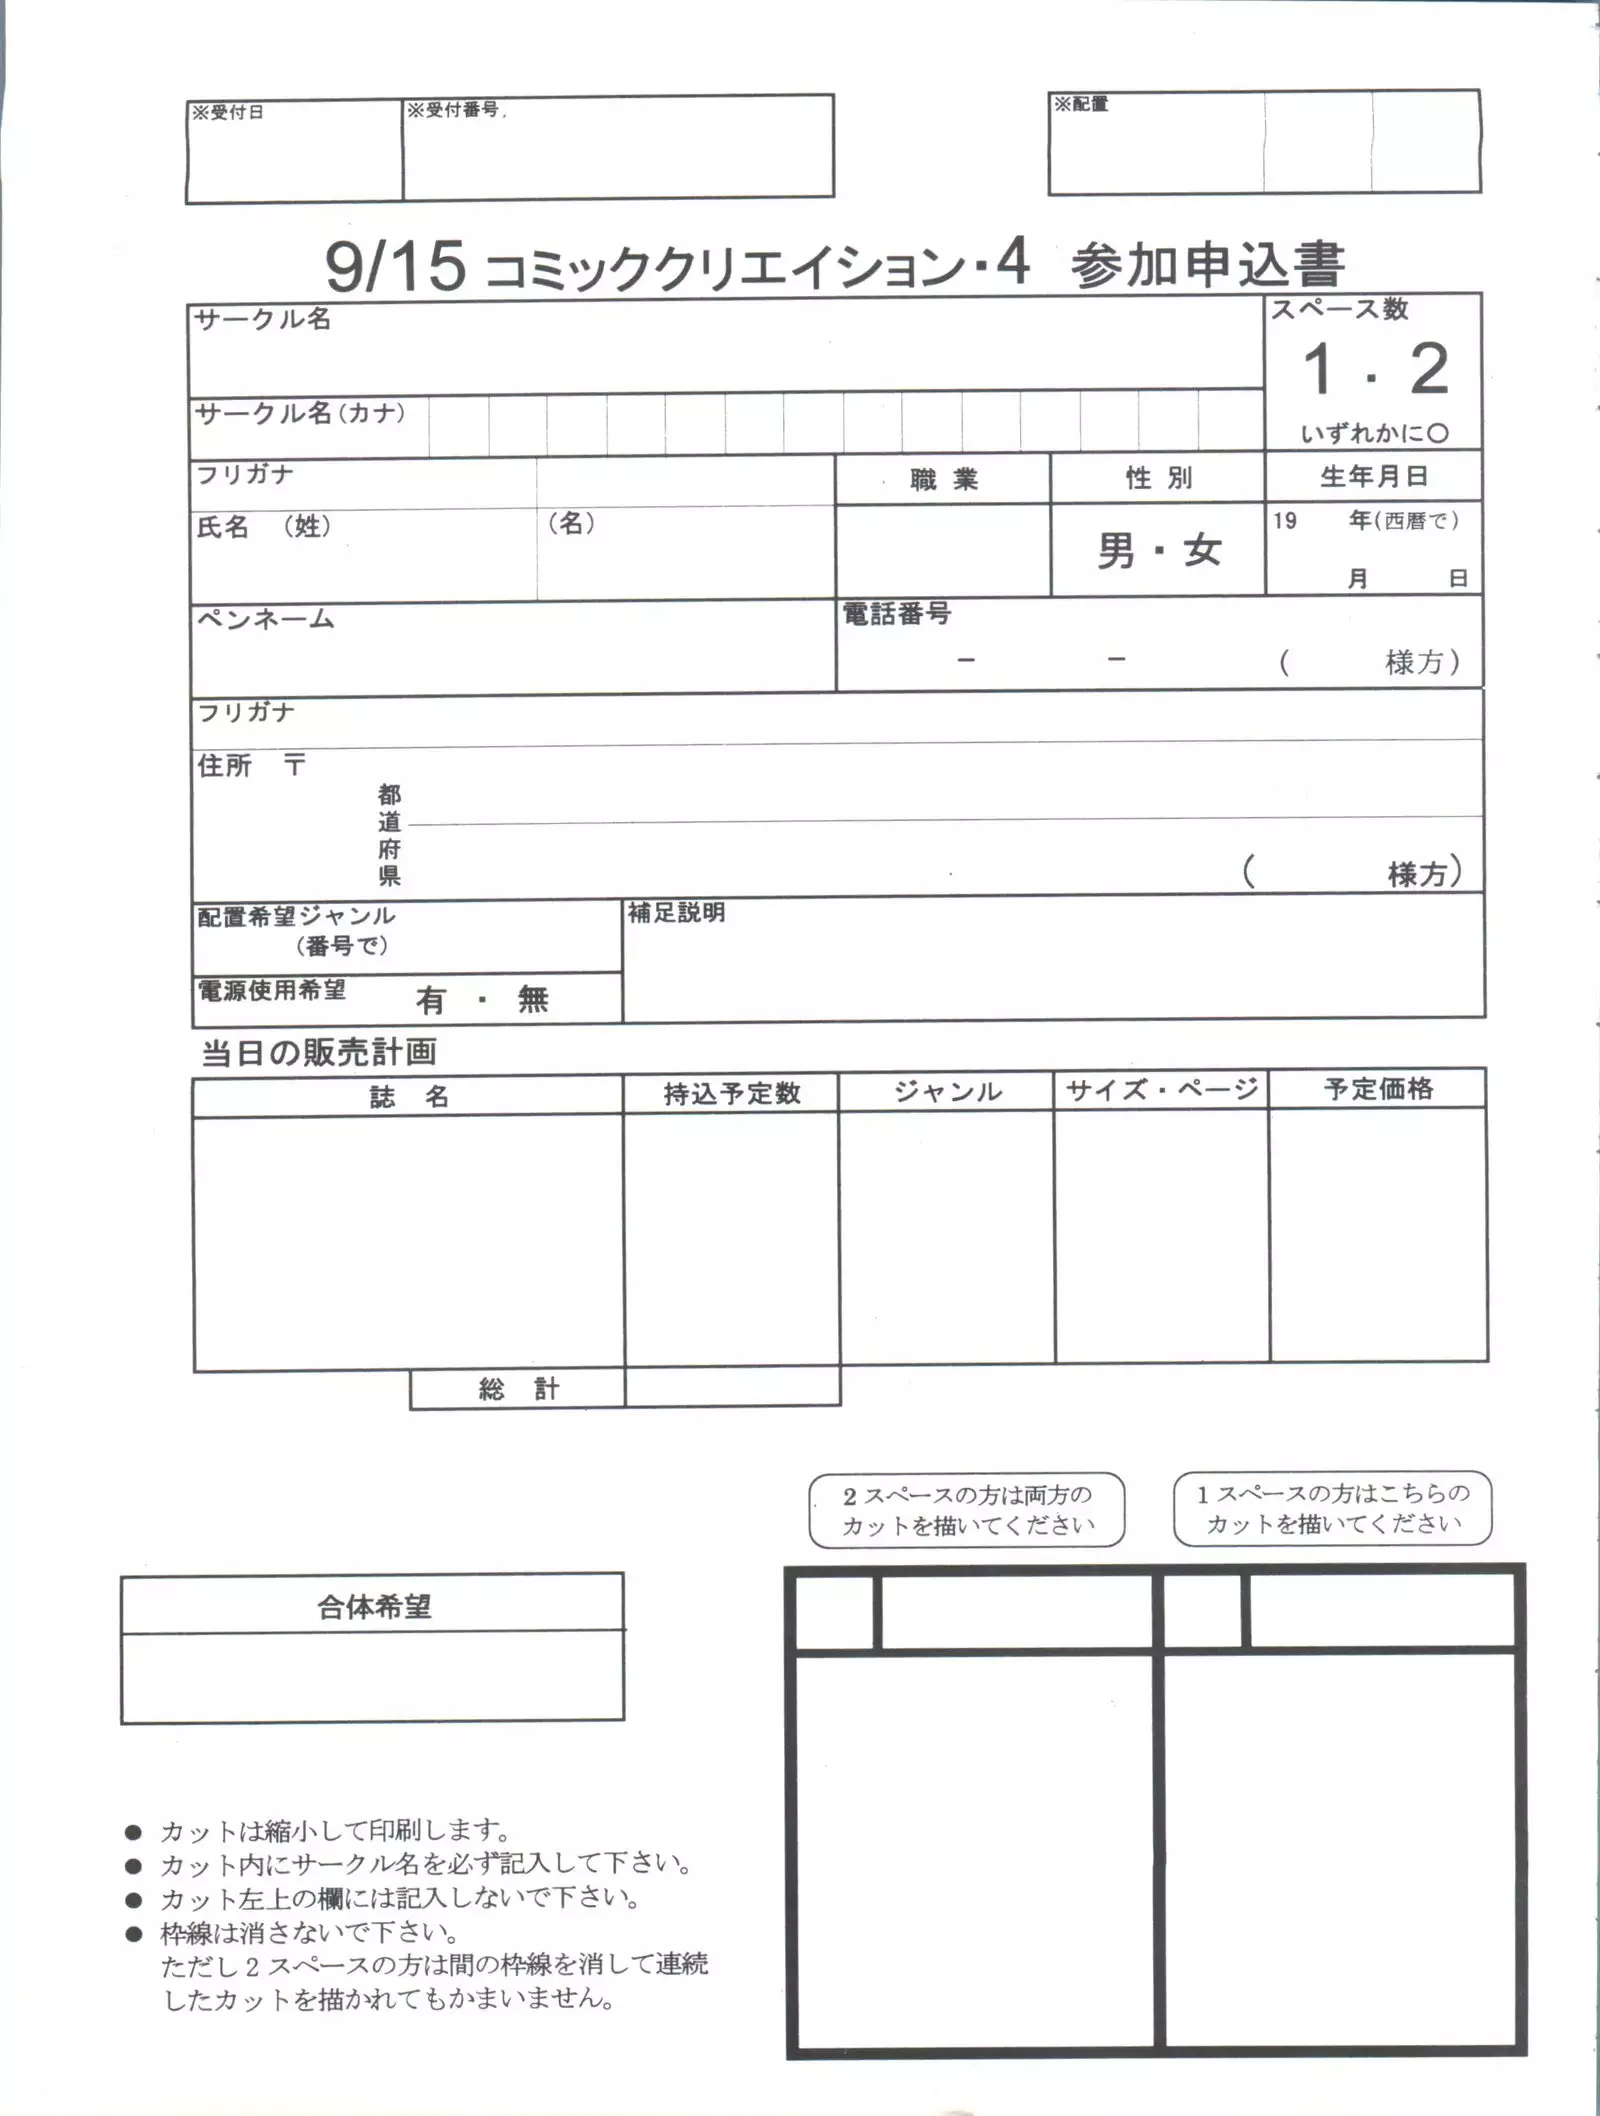 ※受付日 ※受付番号 ※配置
9/15 コミッククリエイション・4 参加申込書
サークル名 スペース数
1・2
いずれかに○
サークル名(カナ)
フリガナ 職業 性別 生年月日
氏名 (姓) (名) 男・女 19 年(西暦で)
月 日
ペンネーム 電話番号
－ － ( 様方)
フリガナ
住所 〒
都道府県
( 様方)
配置希望ジャンル 補足説明
(番号で)
電源使用希望 有・無
当日の販売計画
誌名 持込予定数 ジャンル サイズ・ページ 予定価格
総計
2スペースの方は両方の
カットを描いてください
1スペースの方はこちらの
カットを描いてください
合体希望
● カットは縮小して印刷します。
● カット内にサークル名を必ず記入して下さい。
● カット左上の欄には記入しないで下さい。
● 枠線は消さないで下さい。
ただし2スペースの方は間の枠線を消して連続
したカットを描かれてもかまいません。